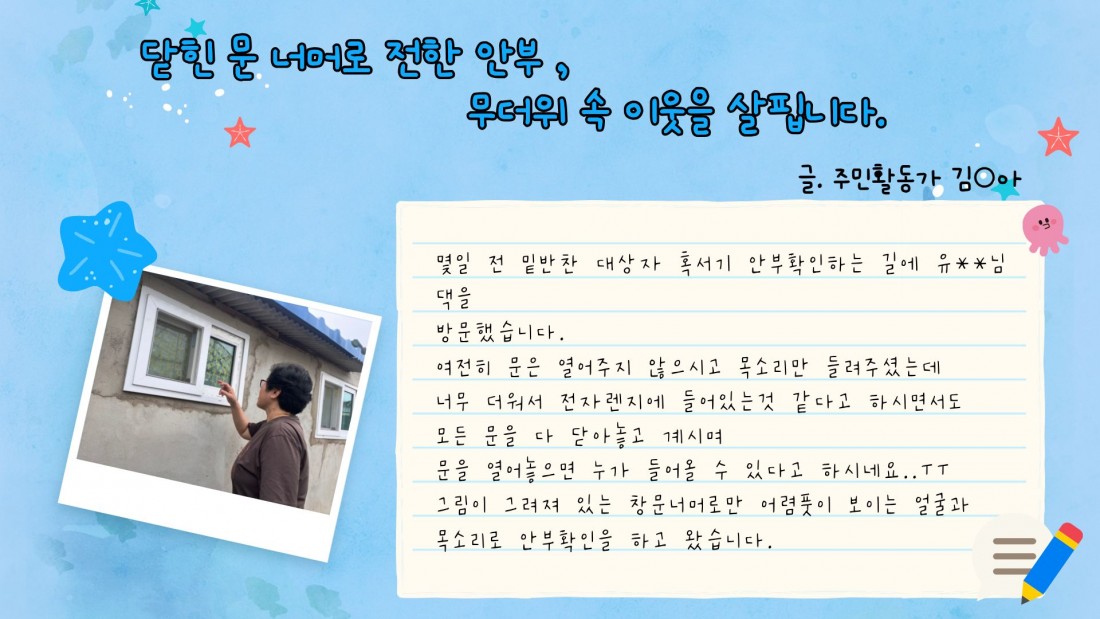 닫힌 문 너머로 전한 안부,
무더위 속 이웃을 살핍니다.
글. 주민활동가 김○아
몇일 전 밑반찬 대상자 혹서기 안부확인하는 길에 유**님
댁을
방문했습니다.
여전히 문은 열어주지 않으시고 목소리만 들려주셨는데
너무 더워서 전자렌지에 들어있는것 같다고 하시면서도
모든 문을 다 닫아놓고 계시며
문을 열어놓으면 누가 들어올 수 있다고 하시네요..TT
그림이 그려져 있는 창문너머로만 어렴풋이 보이는 얼굴과
목소리로 안부확인을 하고 왔습니다.